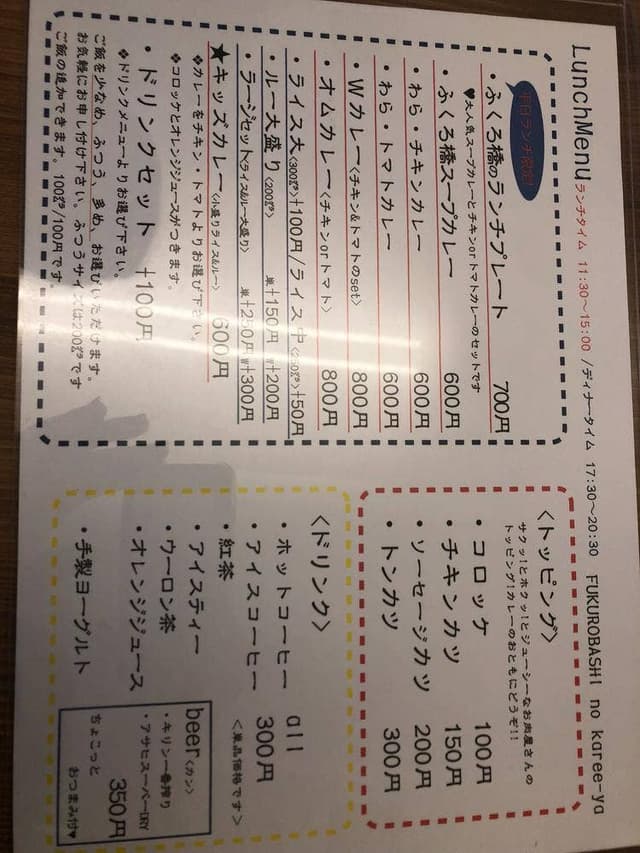 LunchMenu ランチタイム 11:30～15:00 /ディナータイム 17:30～20:30 FUKUROBASHI no karee-ya
平日ランチ限定!
・ふくろ橋のランチプレート 700円
♥大人気スープカレーとチキンorトマトカレーのセットです
・ふくろ橋スープカレー 600円
・わら・チキンカレー 600円
・わら・トマトカレー 600円
・Wカレー<チキン&トマトのset> 800円
・オムカレー<チキンorトマト> 800円
・ライス大<300㌘>+100円/ライス中<250㌘>+50円
・ルー大盛り<200㌘> 単+150円 W+200円
・ラージセット<ライス&ルー大盛り> 単+250円 W+300円
★キッズカレー<小盛りライス&ルー> 600円
❖カレーをチキン・トマトよりお選び下さい。
❖コロッケとオレンジジュースがつきます。
・ドリンクセット +100円
❖ドリンクメニューよりお選び下さい。
ご飯を少なめ、ふつう、多め、お選びいただけます。
お気軽にお申し付け下さい。ふつうサイズは200㌘です
ご飯の追加できます。100㌘/100円です。
<トッピング>
サクッ!とホクッ!とジューシーなお肉屋さんの
トッピング!カレーのおともにどうぞ!!
・コロッケ 100円
・チキンカツ 150円
・ソーセージカツ 200円
・トンカツ 300円
<ドリンク>
・ホットコーヒー all
・アイスコーヒー 300円
・紅茶 <単品価格です>
・アイスティー
・ウーロン茶
・オレンジジュース
・手製ヨーグルト
beer<カン>
・キリン一番搾り
・アサヒスーパーDRY
350円
ちょこっと
おつまみ付♥